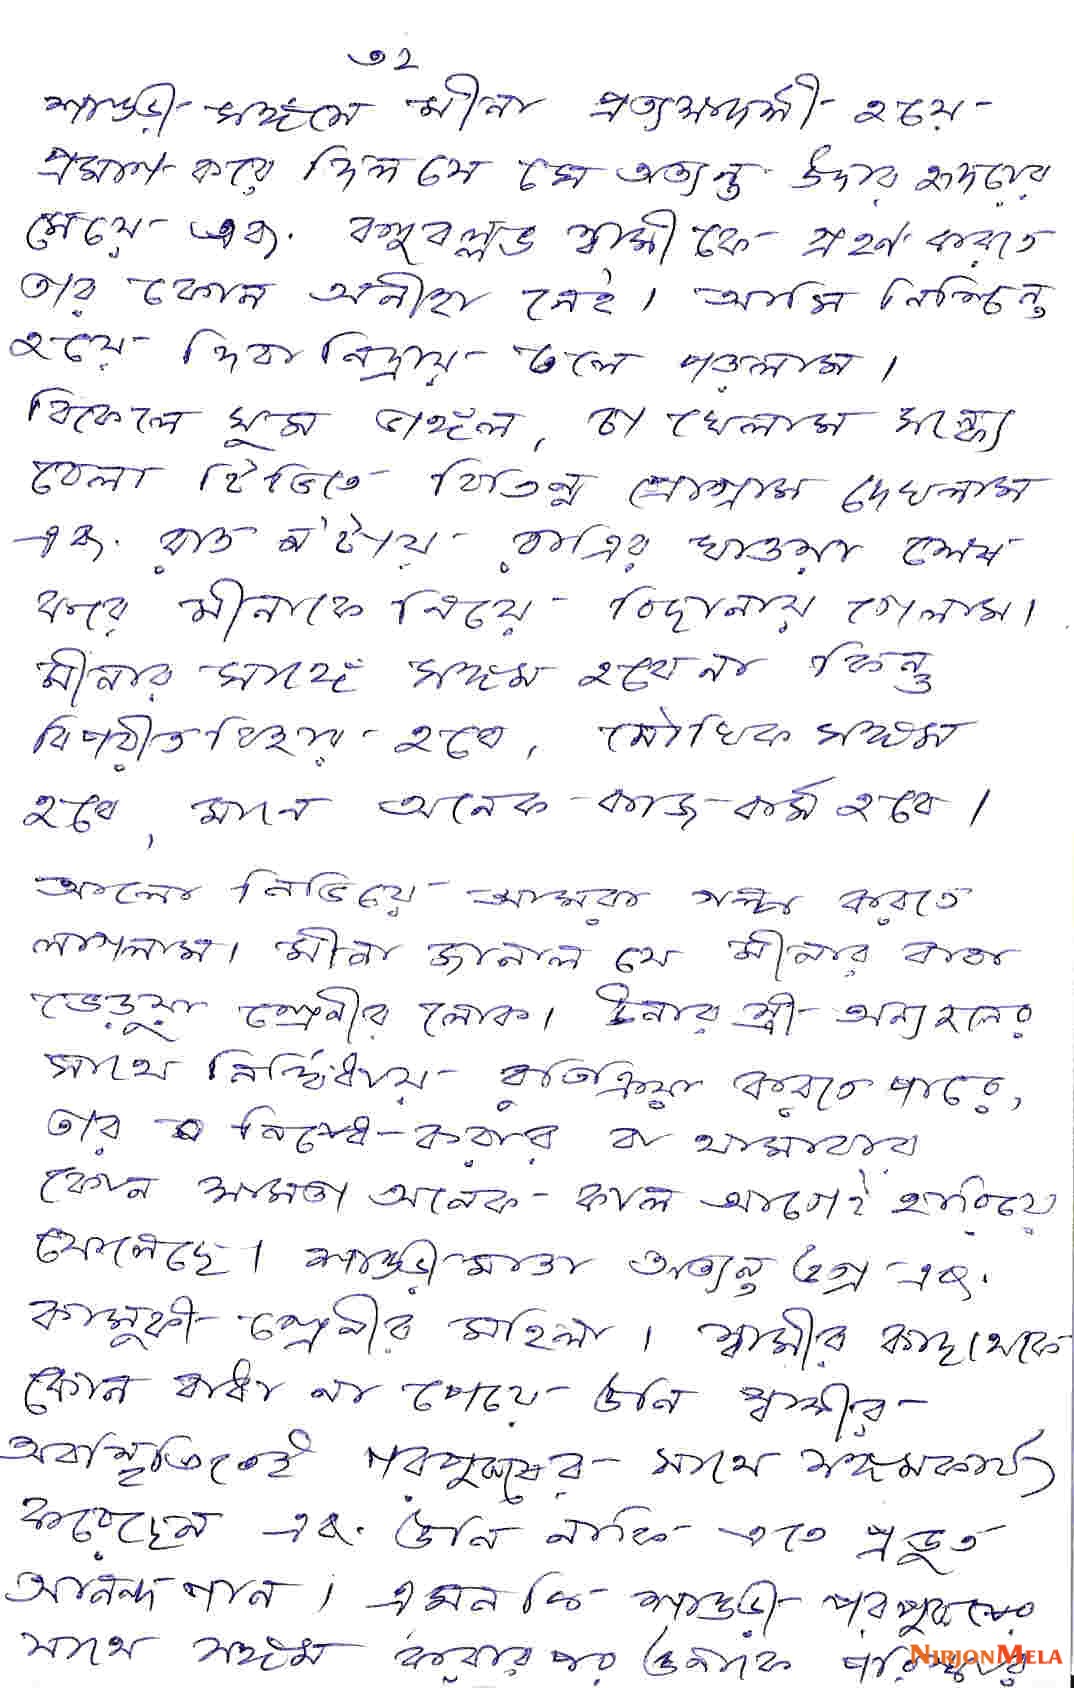 ৩২
শাশুড়ী সঙ্গমে মীনা প্রত্যক্ষদর্শী হয়ে
প্রমাণ করে দিল যে সে অত্যন্ত উদার হৃদয়ের
মেয়ে এবং বহুবল্লভ স্বামীকে গ্রহণ করতে
তার কোন অনীহা নেই। আমি নিশ্চিন্ত
হয়ে দিবানিদ্রায় ঢলে পড়লাম।
বিকেলে ঘুম ভাঙ্গল, চা খেলাম সন্ধ্যে
বেলা টিভিতে বিভিন্ন প্রোগ্রাম দেখলাম
এবং রাত ন'টায় রাত্রির খাওয়া শেষ
করে মীনাকে নিয়ে বিছানায় গেলাম।
মীনার সাথে সঙ্গম হবেনা কিন্তু
বিপরীত বিহার হবে, মৌখিক সঙ্গম
হবে, মানে অনেক কাজ কর্ম হবে।
আলো নিভিয়ে আমরা গল্প করতে
লাগলাম। মীনা জানাল যে মীনার বাবা
ভেড়ুয়া শ্রেনীর লোক। উনার স্ত্রী অন্যের
সাথে নির্দ্বিধায় রতিক্রিয়া করতে পারে,
তার নিষেধ করার বা থামাবার
কোন ক্ষমতা অনেক কাল আগেই হারিয়ে
ফেলেছে। শাশুড়ীমাতা অত্যন্ত উগ্র এবং
কামুকী শ্রেনীর মহিলা। স্বামীর কাছ থেকে
কোন বাধা না পেয়ে উনি স্বামীর
অবস্থিতিতেই পরপুরুষের সাথে সঙ্গমকার্য্য
করেছেন এবং উনি নাকি এতে প্রভূত
আনন্দ পান। এমন কি শাশুড়ী পরপুরুষের
সাথে সঙ্গম করার পর উনাকে পরিষ্কার
NIRJONMELA